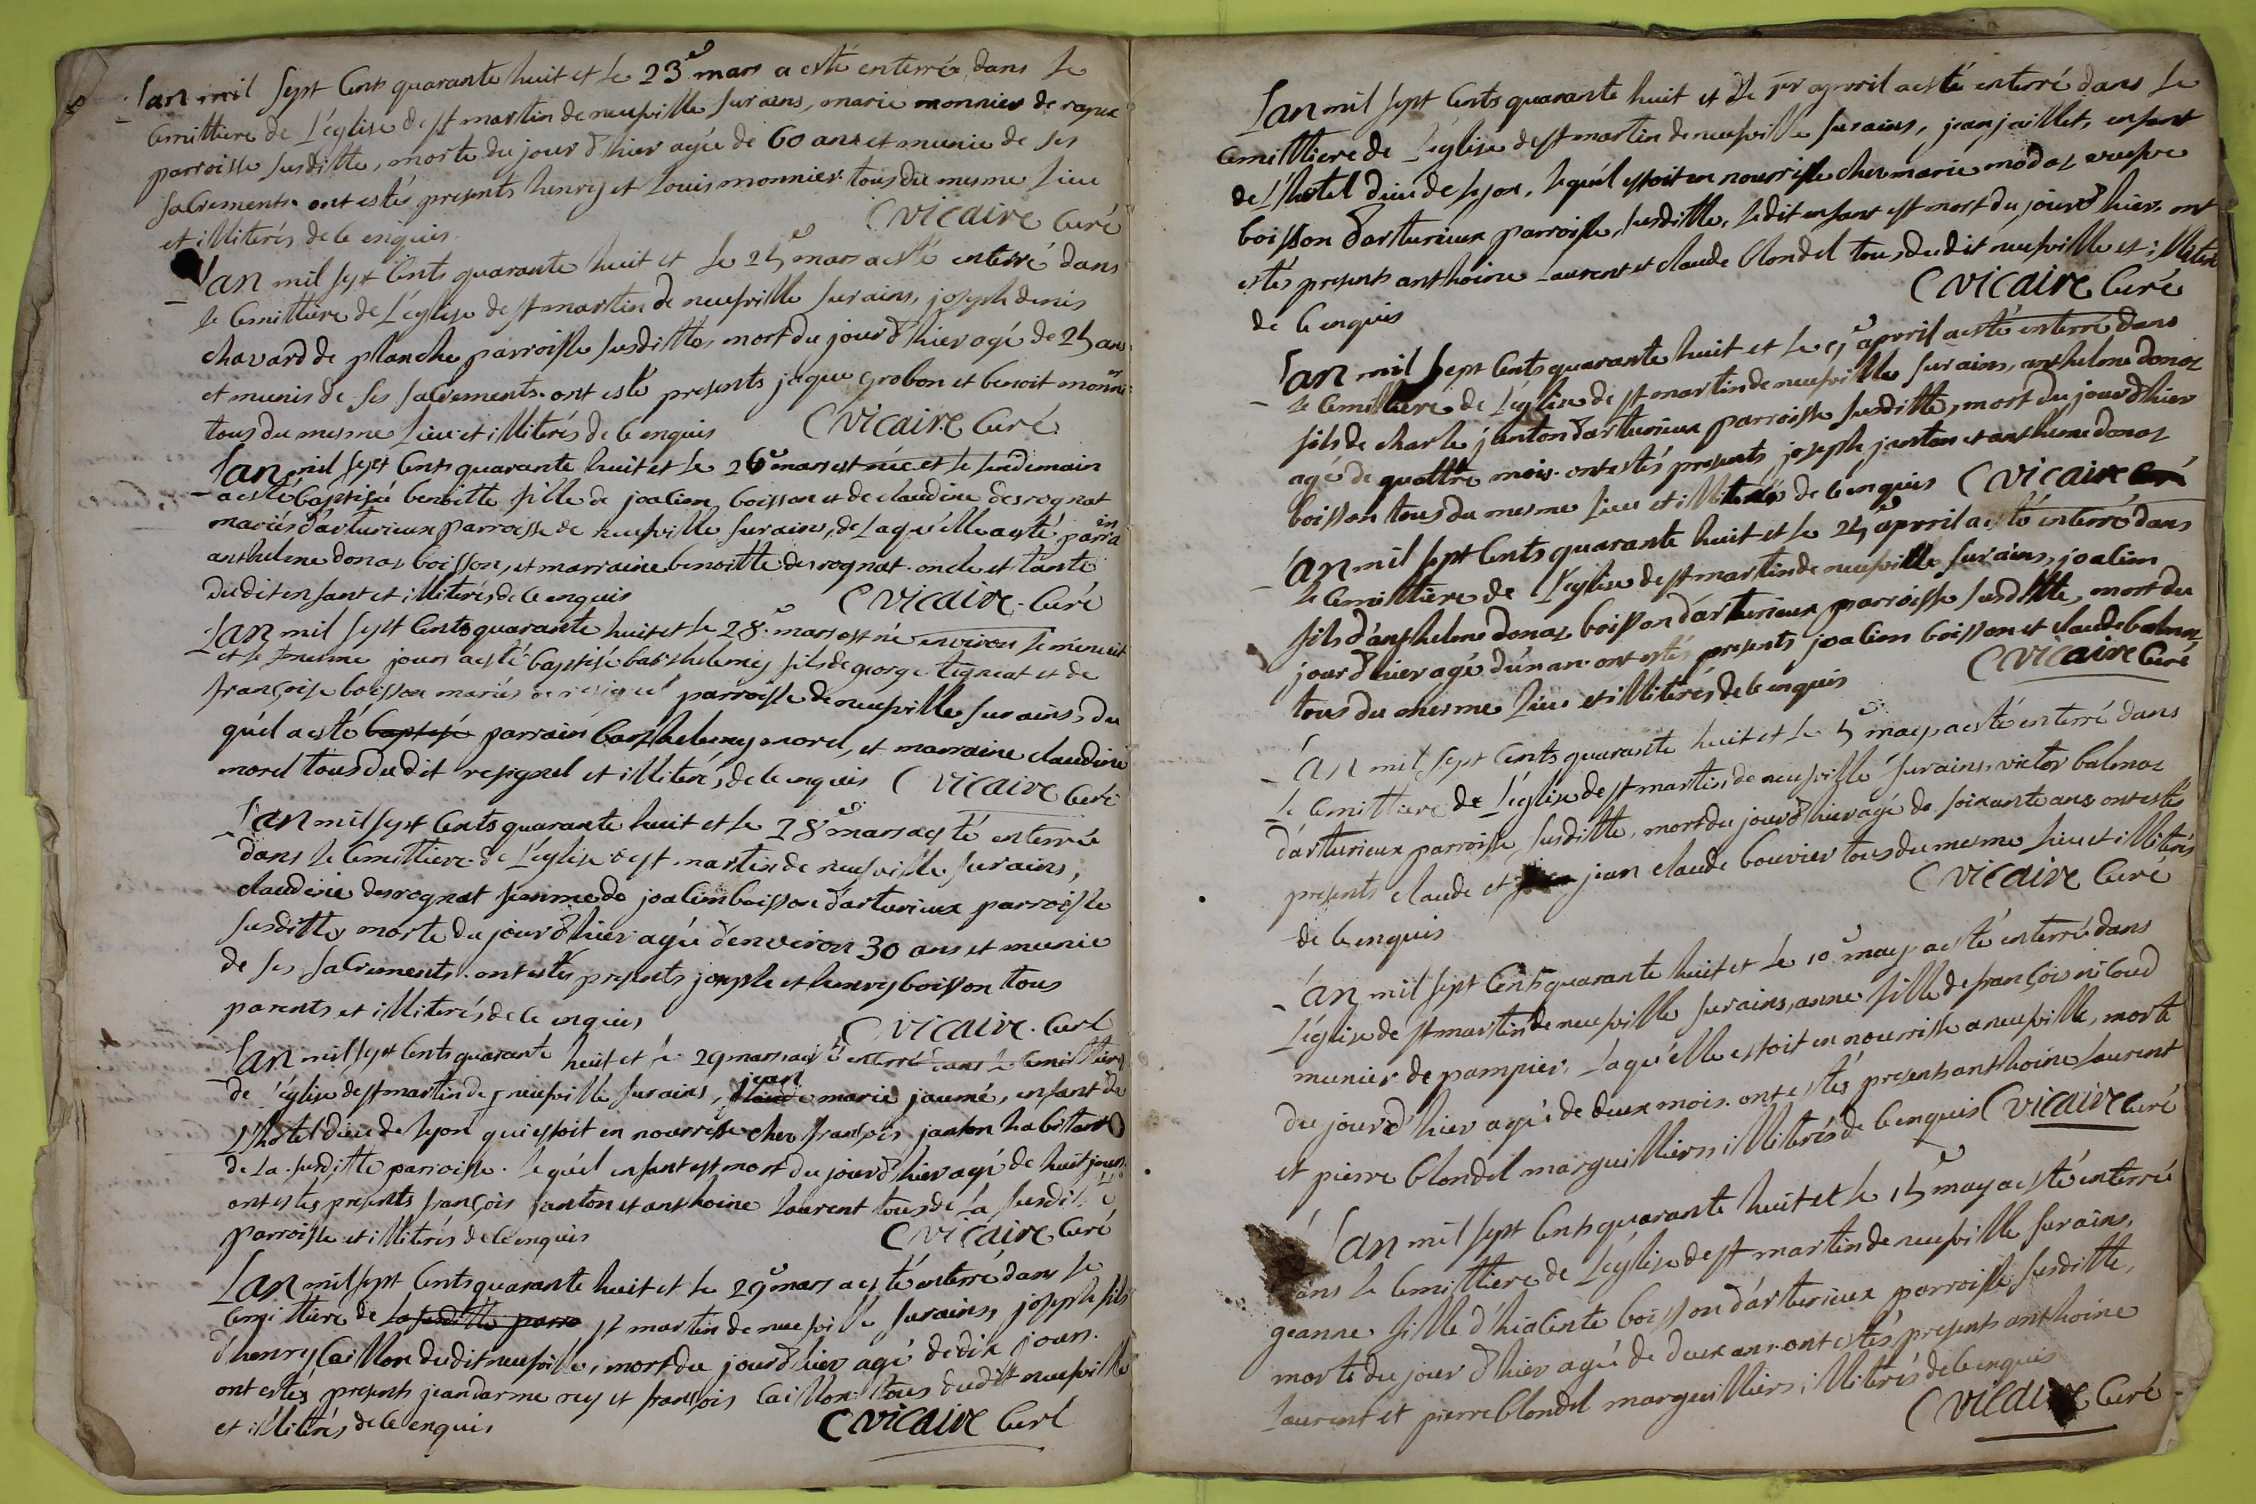 Lan mil sept Cents quarante huit et le 23e mars a esté enterré dans le
Cemittiere de L'église de st martin de neufville sur ains, marie monnier de
parroisse susditte, morte du jour d'hier agée de 60 ans et munie de ses
sacrements. ont estés presents henry et Louis monnier tous du mesme Lieu
et illiterés de ce enquis C vicaire Curé
Lan mil sept Cents quarante huit et le 25e mars a esté enterré dans
le Cemittiere de L'église de st martin de neufville sur ains, joseph denis
chavard de planche parroisse susditte, mort du jour d'hier agé de 25 ans
et munis de ses sacrements. ont esté presents jaque grobon et benoit monnier
tous du mesme Lieu et illiterés de ce enquis C vicaire Curé
Lan mil sept Cents quarante huit et le 26e mars est née et le lendemain
a esté baptisée benoitte fille de joacim boisson et de claudine desrognat
mariés d'arturieux parroisse de neufville sur ains, de laqu'elle a esté parrain
anthelme donat boisson, et marraine benoitte desrognat. oncle et tante
dudit enfant et illiterés de ce enquis C vicaire Curé
Lan mil sept Cents quarante huit et le 28e mars est né environ le minuit
et le mesme jour a esté baptisé barthelemy fils de george tignat et de
françoise boisson mariés de resignel parroisse de neufville sur ains, du
qu'el a esté baptisé parrain barthelemy morel, et marraine claudine
morel tous dudit resignel et illiterés de ce enquis C vicaire Curé
Lan mil sept Cents quarante huit et le 28e mars a esté enterré
dans le Cemittiere de L'église de st martin de neufville sur ains,
claudine desrognat femme de joacim boisson d'arturieux parroisse
susditte, morte du jour d'hier agée d'environ 30 ans et munie
de ses sacrements. ont estés presents joseph et henry boisson tous
parents et illiterés de ce enquis C vicaire Curé
Lan mil sept Cents quarante huit et le 29 mars a esté enterré dans le Cemittiere
de l'église de st martin de neufville sur ains, jean marie jaumé, enfant de
L'hotel dieu de lyon qui estoit en nourrisse chez françois janton habitant
de La susditte parroisse. lequ'el enfant est mort du jour d'hier agé de huit jours.
ont estés presents françois janton et anthoine Laurent tous de La susditte
parroisse et illiterés de ce enquis C vicaire Curé
Lan mil sept Cents quarante huit et le 29e mars a esté enterré dans le
Cemittiere de la susditte parro st martin de neufville sur ains, joseph fils
d'henry Caillon dudit neufville, mort du jour d'hier agé de dix jours.
ont estés presents jean darme rey et françois Caillon tous dudit neufville
et illiterés de ce enquis C vicaire Curé
Lan mil sept Cents quarante huit et le 1er apvril a esté enterré dans le
Cemittiere de L'église de st martin de neufville sur ains, jean jaillet, enfant
de L'hotel dieu de lyon, lequ'el estoit en nourrisse chez marie modaz veufve
boisson d'arturieux parroisse susditte, ledit enfant est mort du jour d'hier. ont
estés presents anthoine Laurent et claude blondel tous dudit neufville et illiterés
de ce enquis C vicaire Curé
Lan mil sept Cents quarante huit et le apvril a esté enterré dans
le Cemittiere de L'église de st martin de neufville sur ains, anthelme donat
fils de charle janton d'arturieux parroisse susditte, mort du jour d'hier
agé de quattre mois. ont estés presents joseph janton et anthelme donat
boisson tous du mesme Lieu et illiterés de ce enquis C vicaire Curé
Lan mil sept Cents quarante huit et le 25e apvril a esté enterré dans
le Cemittiere de L'église de st martin de neufville sur ains, joacim
fils d'anthelme donat boisson d'arturieux parroisse susditte, mort du
jour d'hier agé d'un an. ont estés presents joacim boisson et claude balmaz
tous du mesme Lieu et illiterés de ce enquis C vicaire Curé
Lan mil sept Cents quarante huit et le 5e may a esté enterré dans
le Cemittiere de L'église de st martin de neufville sur ains, victor balmaz
d'arturieux parroisse susditte, mort du jour d'hier agé de soixante ans ont estés
presents claude et jean claude bouvier tous du mesme Lieu et illiterés
de ce enquis C vicaire Curé
Lan mil sept Cents quarante huit et le 10e may a esté enterré dans
L'église de st martin de neufville sur ains, anne fille de françois nicoud
munier de pampier, laqu'elle estoit en nourrisse a neufville, morte
du jour d'hier agée de deux mois. ont estés presents anthoine Laurent
et pierre blondel marguilliers illiterés de ce enquis C vicaire Curé
Lan mil sept Cents quarante huit et le 15e may a esté enterré
dans le Cemittiere de L'église de st martin de neufville sur ains,
geanne fille d'hiacinte boisson d'arturieux parroisse susditte,
morte du jour d'hier agée de deux ans. ont estés presents anthoine
Laurent et pierre blondel marguilliers illiterés de ce enquis
C vicaire Curé